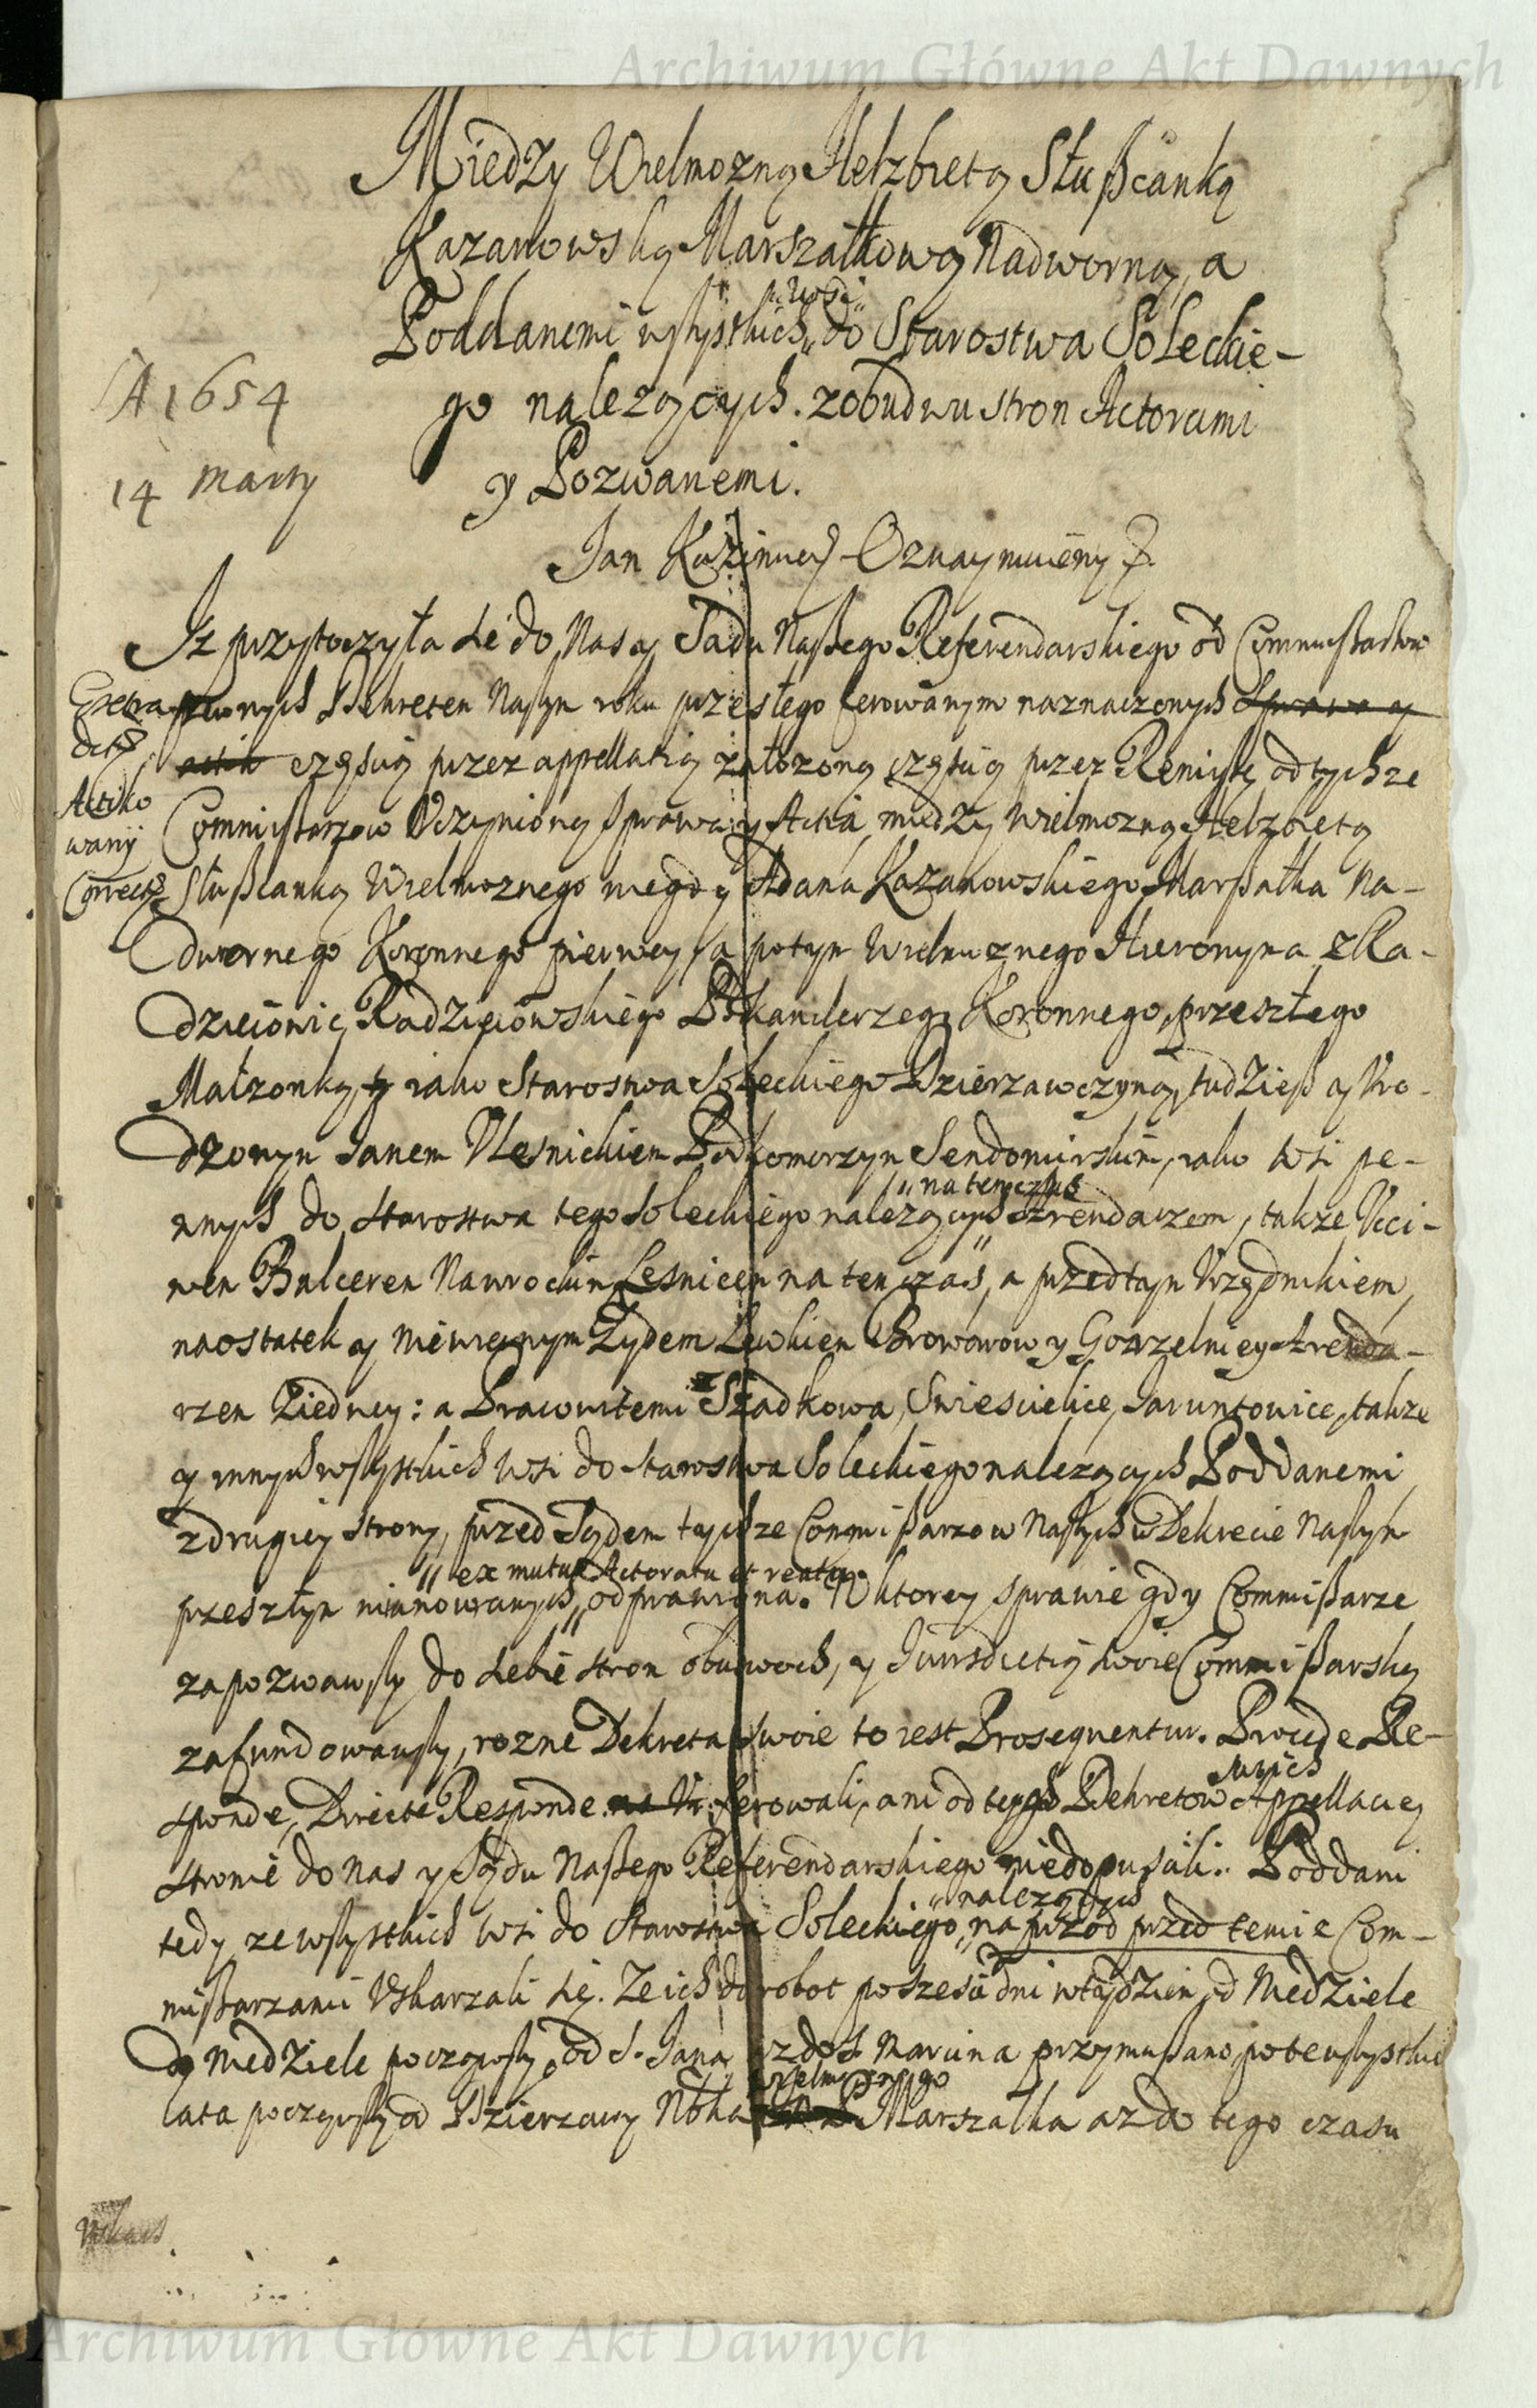 Archiwum Główne Akt Dawnych
Miedzy Wielmozną Helzbietą Słuszcanką
Kazanowską Marszałkową Nadworną, a
Poddanemi wszystkich wsi do Starostwa Soleckie-
go nalezących. zobudwu stron Actorami
y Pozwanemi.
A 1654
14 Marty
Jan Kazimierz Oznaymuiemy
Iz przytoczyła sie do Nas y Sadu Naszego Referendarskiego od Commissarzow
pewnych Dekretem Naszym roku przeszłego ferowanym naznaczonych sprawa y
actia częscią przez appellatią załozoną częscią przez Remissę od tychze
Commissarzow Uczynioną sprawa y Actia, miedzy Wielmozną Helzbietą
Extra
dct
Actiko
wany
Correct
Słuszcanką Wielmoznego niegdy Adama Kazanowskiego Marszałka Na-
dwornego Koronnego pierwey, a potym Wielmoznego Hieronyma z Ra-
dzieiowic Radzieiowskiego Podkanclerzego Koronnego, przeszłego
Małzonką, iako Starostwa Soleckiego Dzierzawczyną, tudziesz y Uro-
dzonym Janem Olesnickiem Podkomorzym Sendomirskim, iako wsi pe-
wnych do Starostwa tego Soleckiego nalezących na ten czas Arendarzem, takze Ucci-
wem Balcerem Nawrockim Lesnicem na ten czas, a przedtym Urzędnikiem,
naostatek y niewiernym Zydem Lewkiem Browarow y Gorzelniey Arenda-
rzem ziedney: a Pracowitemi Sadkowa, Swiesielice, Jaruntowice, takze
y innych wszystkich wsi do Starostwa Soleckiego nalezących Poddanemi
zdrugiey strony, przed Sądem tychze Commissarzow Naszych w Dekrecie Naszym
przeszłym mianowanych, ex mutuo Actoratu et reatu odprawiona. W ktorey sprawie gdy Commissarze
zapozwawszy do siebie stron obuwoch, y Jurisdictią swoie Commissarską
zafundowawszy, rozne Dekreta swoie to iest Prosequentur. Procede Re-
sponde, Directe Responde ferowali, ani od tych Dekretow swoich Appellaciey
stronie do Nas y Sądu Naszego Referendarskiego niedopuscili. Poddani
tedy ze wszystkich wsi do Starostwa Soleckiego nalezących naprzod przed temiz Com-
missarzami Uskarzali się. Ze ich do robot po szesci dni w tydzien, od Niedziele
do Niedziele począwszy, od S. Jana az do S. Marcina przymuszano, po te wszystkie
lata począwszy od Dzierzawy Nbka Wielmoznego Marszałka az do tego czasu
Archiwum Główne Akt Dawnych